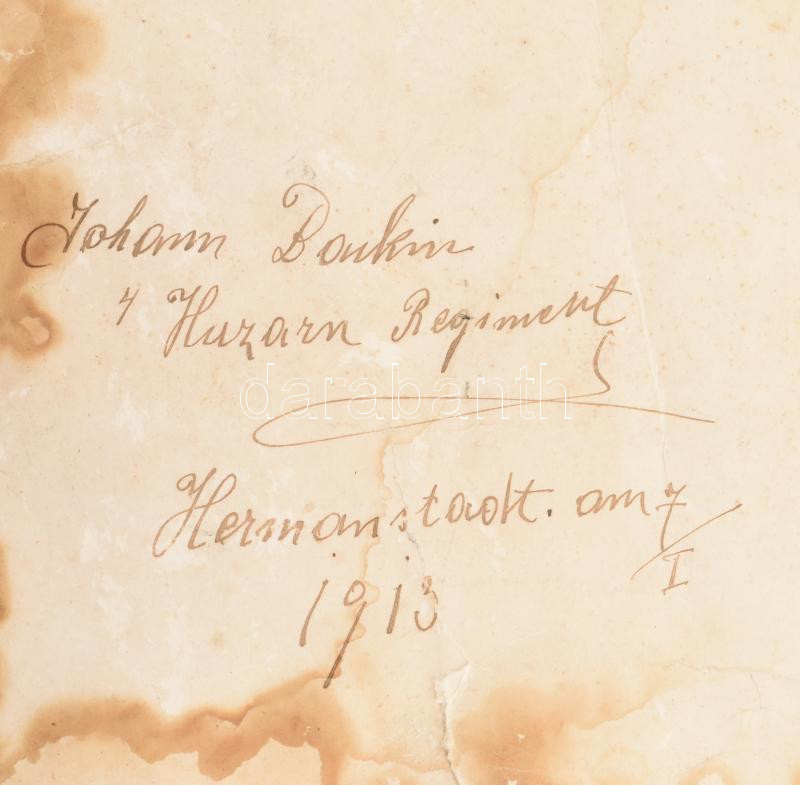 Johann Baukin
4 Huzarn Regiment
darabanth
Hermanstadt. am 7/I
1913